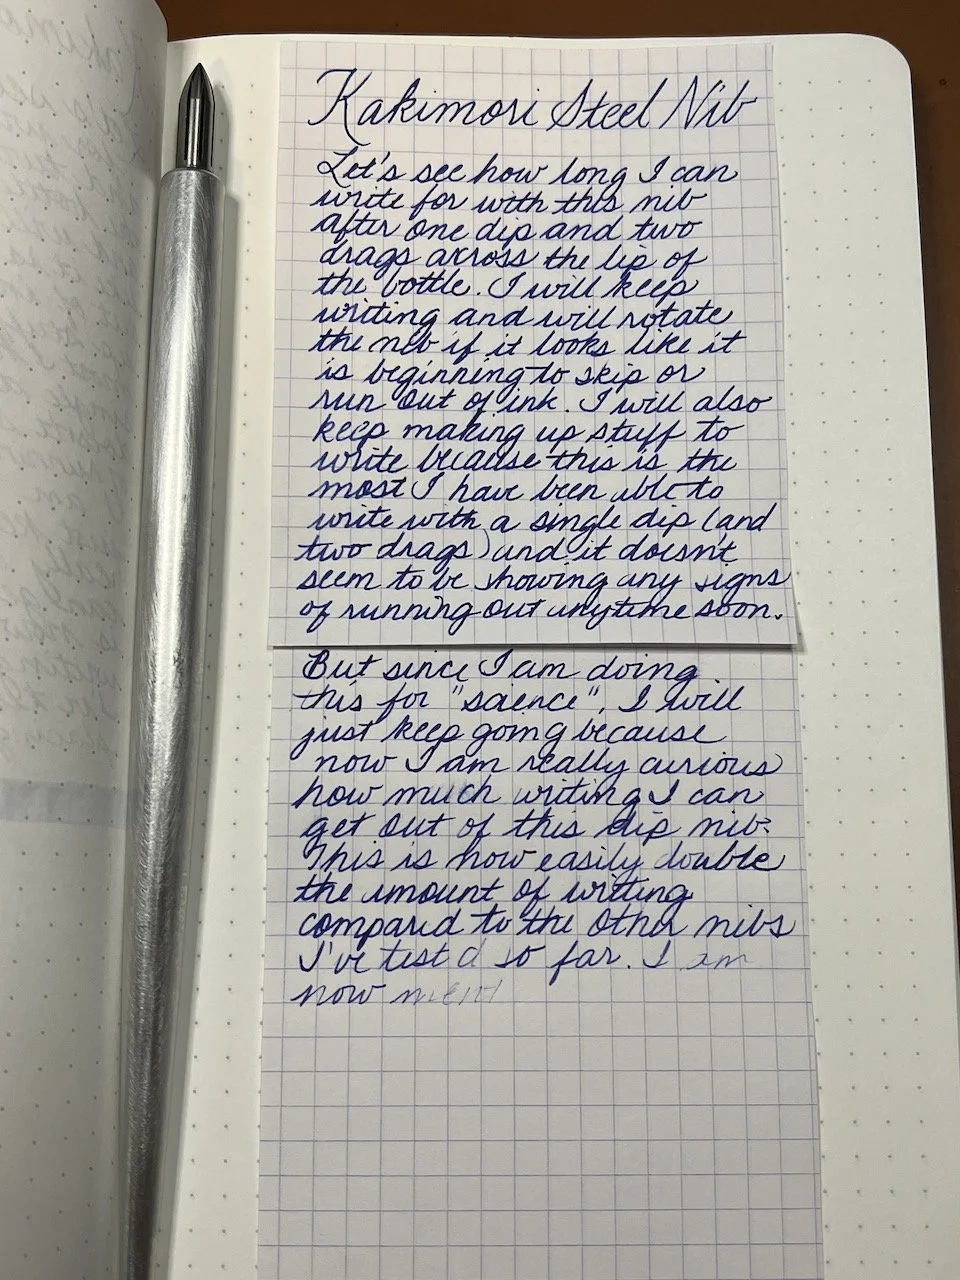 Kakimori Steel Nib
Let's see how long I can
write for with this nib
after one dip and two
drags across the lip of
the bottle. I will keep
writing and will rotate
the nib if it looks like it
is beginning to skip or
run out of ink. I will also
keep making up stuff to
write because this is the
most I have been able to
write with a single dip (and
two drags) and it doesn't
seem to be showing any signs
of running out anytime soon.
But since I am doing
this for "science", I will
just keep going because
now I am really curious
how much writing I can
get out of this dip nib.
This is now easily double
the amount of writing
compared to the other nibs
I've test d so far. I am
now